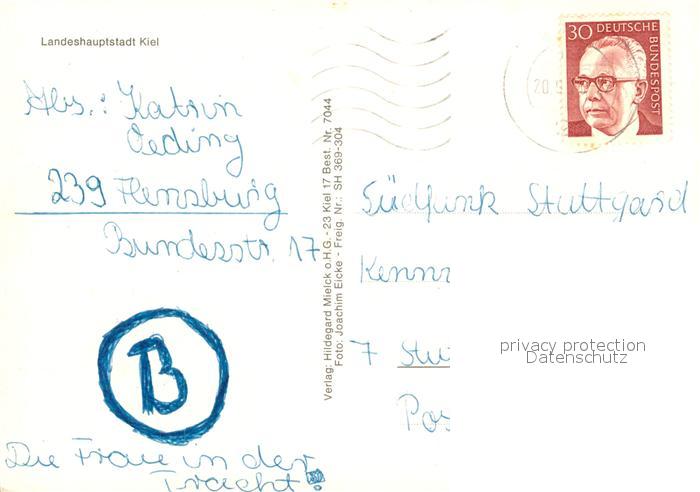 Landeshauptstadt Kiel
30 DEUTSCHE BUNDESPOST
20.
Abs.: Katrin
Oeding
239 Flensburg
Bundesstr. 17
Verlag: Hildegard Mielck o.H.G. - 23 Kiel 17 Best. Nr. 7044
Foto: Joachim Eicke - Freig. Nr.: SH 369-304
Südfunk Stuttgard
Kenn
7 Stu
Pos
privacy protection
Datenschutz
B
Die Frau in der
Tracht!